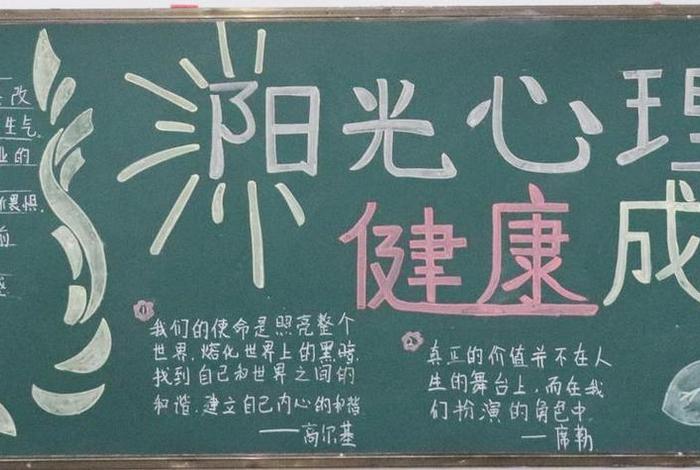 改
生气
业的
惧
前
阳光心理
健康成
1
我们的使命是照亮整个
世界,熔化世界上的黑暗,
找到自己和世界之间的
和谐,建立自己内心的和谐
——高尔基
2
真正的价值并不在人
生的舞台上,而在我
们扮演的角色中
——席勒